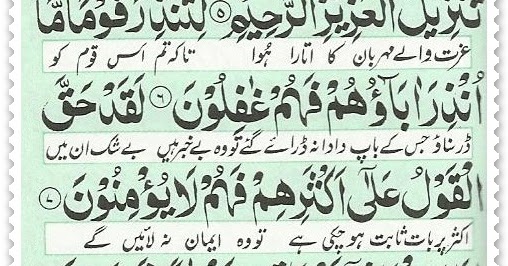 تَنۡزِيۡلَ الۡعَزِيۡزِ الرَّحِيۡمِۙ‏ ﴿۵﴾ لِتُنۡذِرَ قَوۡمًا مَّاۤ
عزت والے مہربان کا اتارا ہُوا تاکہ تم اُس قوم کو
اُنۡذِرَ اٰبَآؤُهُمۡ فَهُمۡ غٰفِلُوۡنَ‏ ﴿۶﴾ لَقَدۡ حَقَّ
ڈر سناؤ جس کے باپ دادا نہ ڈرائے گئے تو وہ بے خبر ہیں بے شک ان میں
الۡقَوۡلُ عَلٰٓى اَكۡثَرِهِمۡ فَهُمۡ لَا يُؤۡمِنُوۡنَ‏ ﴿۷﴾
اکثر پر بات ثابت ہو چکی ہے تو وہ ایمان نہ لائیں گے